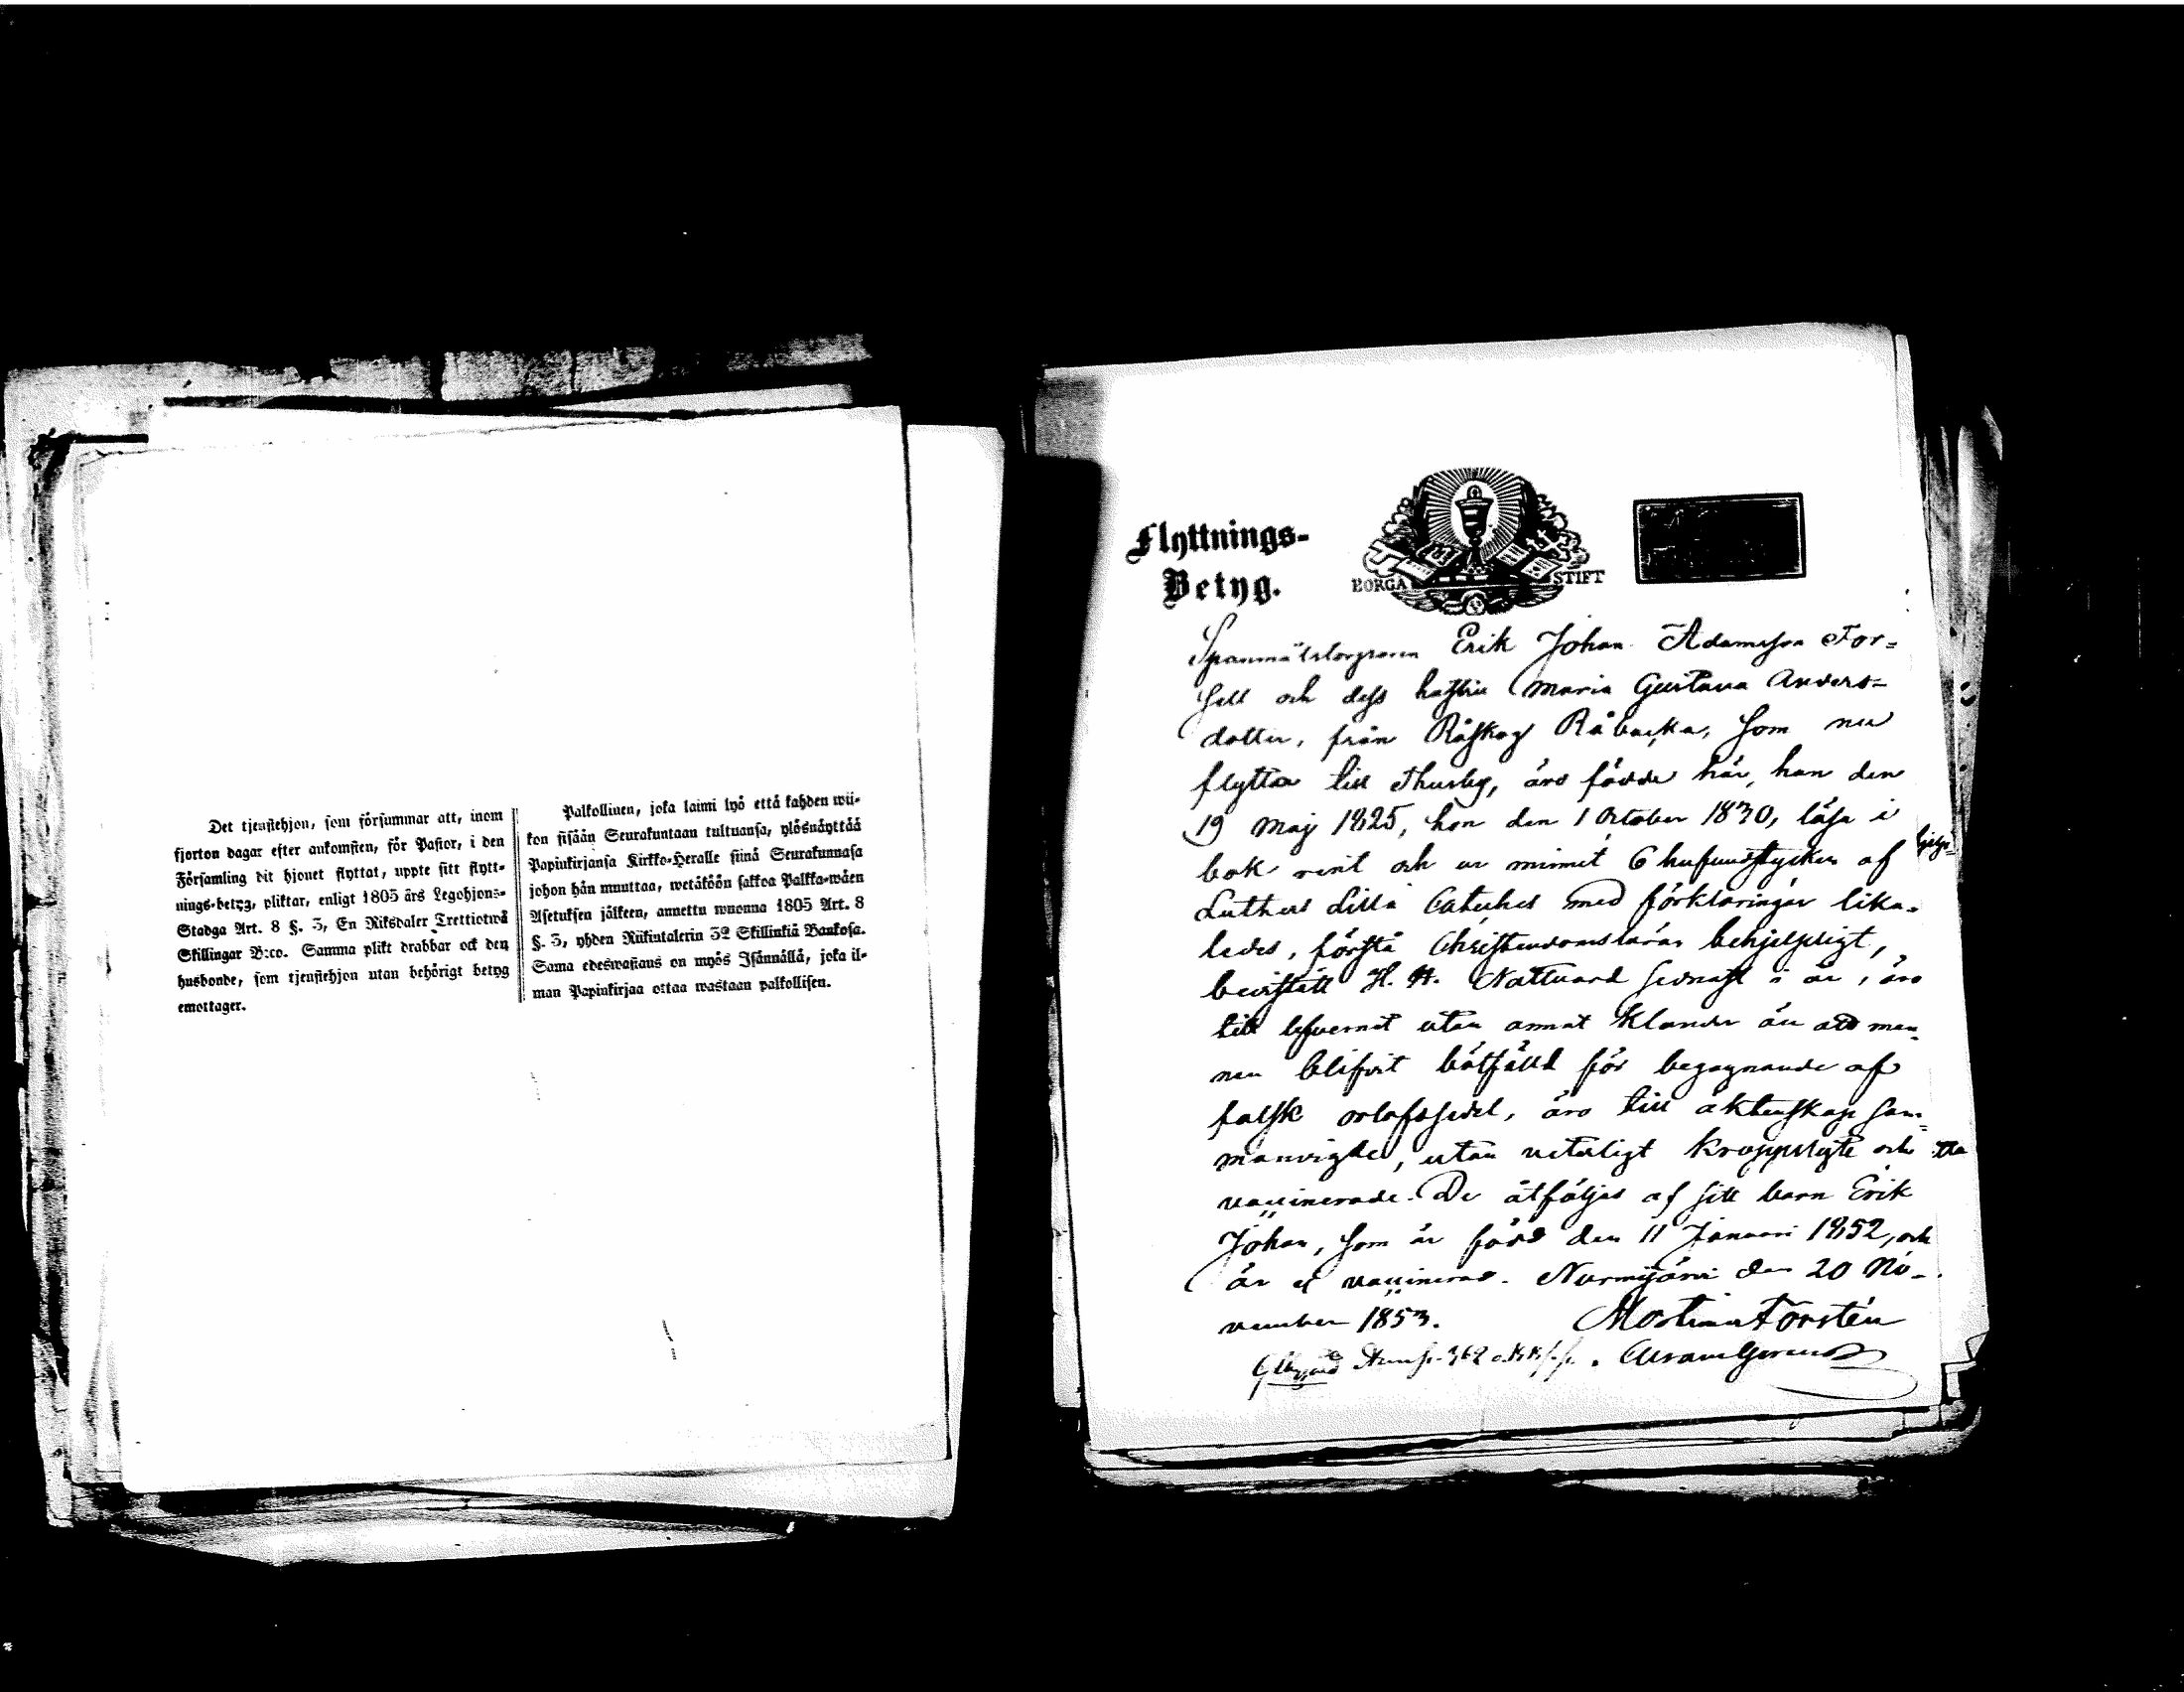 Det tjenstehjon, som försummar att, inom
fjorton dagar efter ankomsten, för Pastor, i den
Församling dit hjonet flyttat, uppte sitt flytt-
nings-betyg, pliktar, enligt 1805 års Legohjons-
Stadga Art. 8 §. 3, En Riksdaler Trettiotwå
Skillingar B:co. Samma plikt drabbar ock den
husbonde, som tjenstehjon utan behörigt betyg
emottager.
Palkollinen, joka laimi lyö että kahden wii-
kon sisään Seurakuntaan tultuansa, ylösnäyttää
Papinkirjansa Kirkko-Heralle siinä Seurakunnasa
johon hän muuttaa, wetäköön sakkoa Palkka-wäen
Asetuksen jälkeen, annettu wuonna 1805 Art. 8
§. 3, yhden Riikintalerin 32 Skillinkiä Bankosa.
Sama edeswastaus on myös Isännällä, joka il-
man Papinkirjaa ottaa wastaan palkollisen.
Flyttnings-
Betyg.
BORGÅ STIFT
Erik Johan Adamsson For-
sell och dess hustru Maria Gustava Anders-
dotter, från Råskog Råbacka, som nu
flytta till Thusby, äro födde här, han den
19 Maj 1825, hon den 1 October 1830, läsa i
bok rent och ur minnet 6 hufvudstycken af
Luthers Lilla Cateches med förklaringar lika-
ledes, förstå Christendomsläran behjelpligt,
bevistatt H. H. Nattvard sednast i år, äro
till lefvernet utan annat klander än att man-
nen blifvit bötfälld för begagnande af
falsk orlofssedel, äro till äktenskap sam-
manvigde, utan veterligt kroppslyte och
vaccinerade. De åtföljas af sitt barn Erik
Johan, som är född den 11 Januari 1852, och
är ej vaccinerad. Nurmijärvi den 20 No-
vember 1853. Forstén